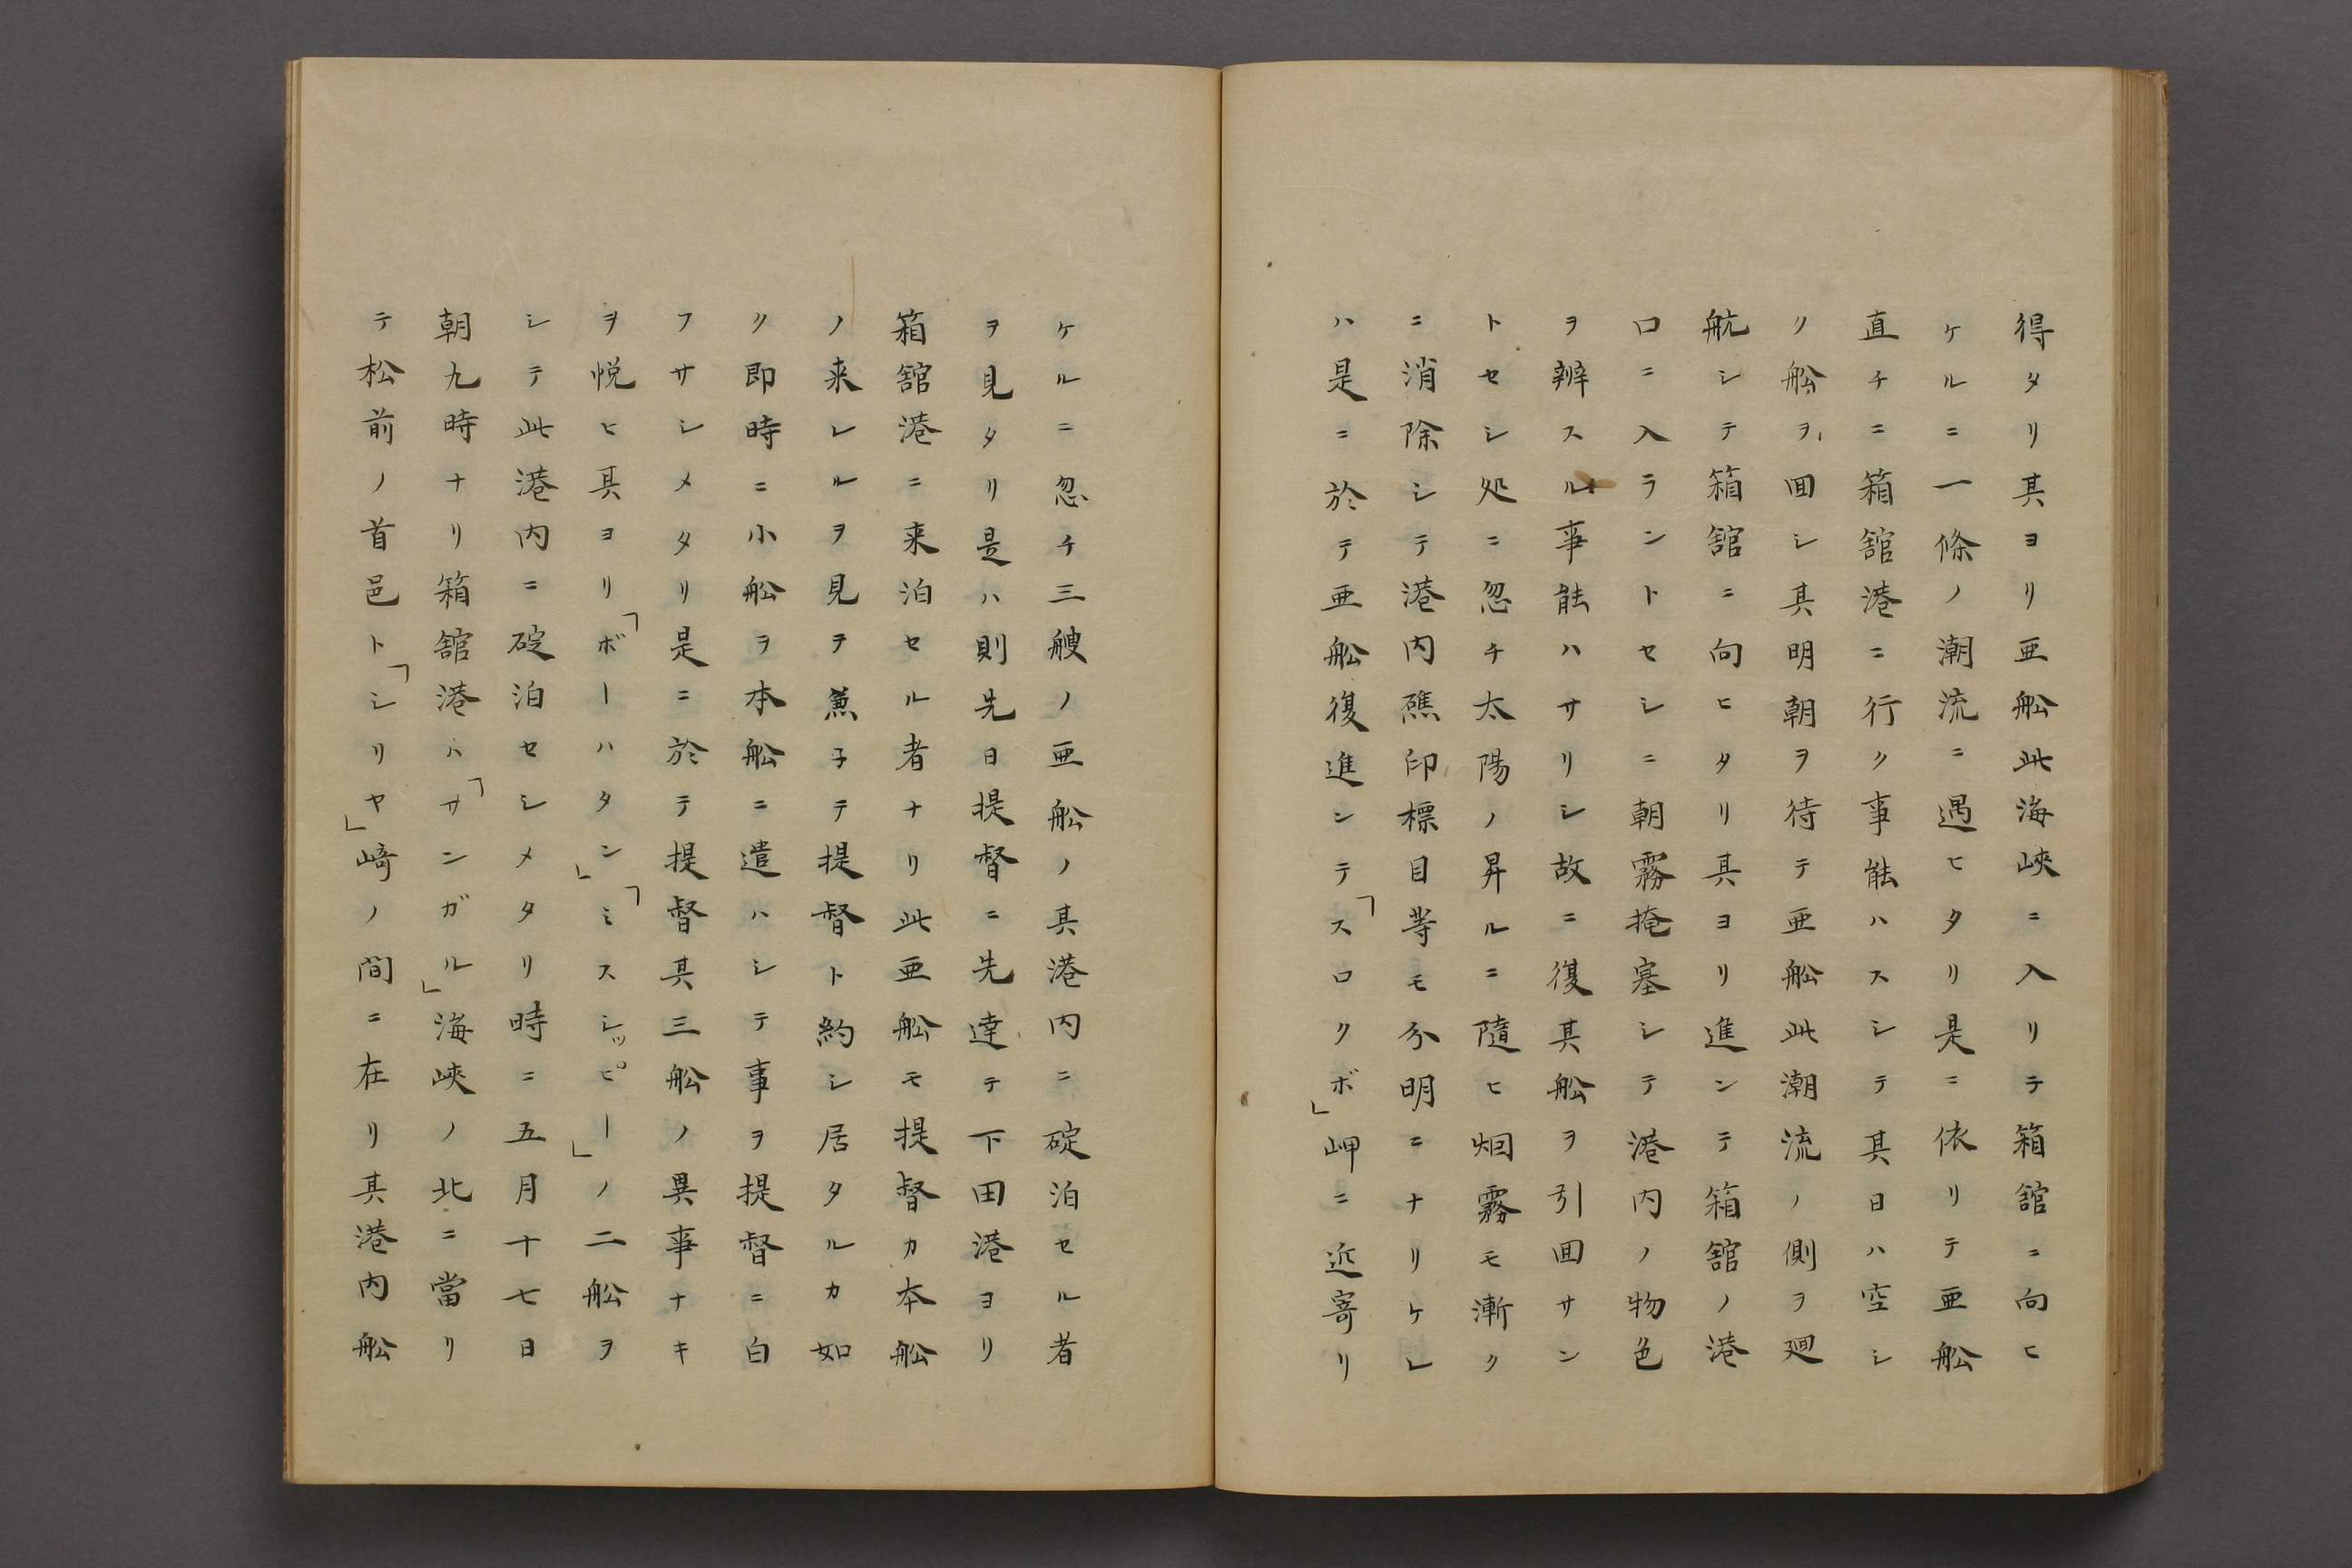 得タリ其ヨリ亜舩此海峽ニ入リテ箱舘ニ向ヒ
ケルニ一條ノ潮流ニ遇ヒタリ是ニ依リテ亜舩
直チニ箱舘港ニ行ク事能ハスシテ其日ハ空シ
ク舩ヲ回シ其明朝ヲ待テ亜舩此潮流ノ側ヲ廻
航シテ箱舘ニ向ヒタリ其ヨリ進ンテ箱舘ノ港
口ニ入ラントセシニ朝霧掩塞シテ港内ノ物色
ヲ辨スル事能ハサリシ故ニ復其舩ヲ引回サン
トセシ処ニ忽チ太陽ノ昇ルニ隨ヒ烟霧モ漸ク
ニ消除シテ港内礁印標目等モ分明ニナリケレ
ハ是ニ於テ亜舩復進ンテ「スロクボ」岬ニ近寄リ
ケルニ忽チ三艘ノ亜舩ノ其港内ニ碇泊セル者
ヲ見タリ是ハ則先日提督ニ先達テ下田港ヨリ
箱舘港ニ来泊セル者ナリ此亜舩モ提督カ本舩
ノ来レルヲ見ヲ兼子テ提督ト約シ居タルカ如
ク即時ニ小舩ヲ本舩ニ遣ハシテ事ヲ提督ニ白
フサシメタリ是ニ於テ提督其三舩ノ異事ナキ
ヲ悦ヒ其ヨリ「ボーハタン」「ミスシッピー」ノ二舩ヲ
シテ此港内ニ碇泊セシメタリ時ニ五月十七日
朝九時ナリ箱舘港ハ「サンガル」海峽ノ北ニ當リ
テ松前ノ首邑ト「シリヤ」﨑ノ間ニ在リ其港内舩